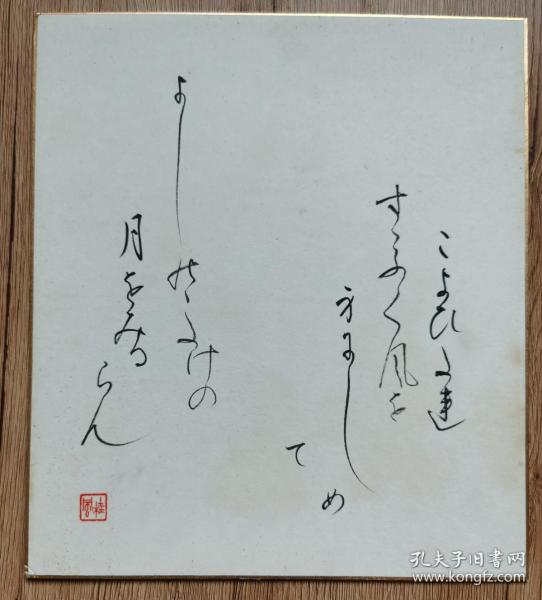 こよひた連
すゝふく風を
身にしめ
て
よしのゝたけの
月をみる
らん
孔夫子旧书网
www.kongfz.com